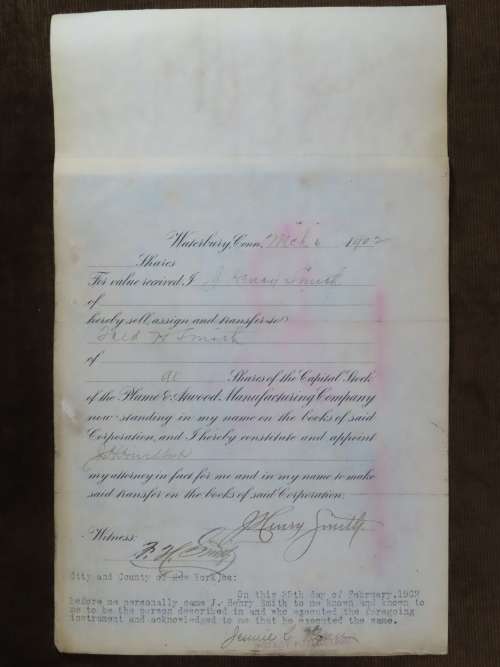 Waterbury, Conn. Mch 6 1902
Shares
For value received, I J. Henry Smith
of
hereby sell, assign and transfer to
H Smith
of
Shares of the Capital Stock
of the Plume & Atwood Manufacturing Company
now standing in my name on the books of said
Corporation, and I hereby constitute and appoint
my attorney in fact for me and in my name to make
said transfer on the books of said Corporation.
J Henry Smith
Witness:
City and County of New York, ss:
On this 25th day of February, 1902
before me personally came J. Henry Smith to me known and known to
me to be the person described in and who executed the foregoing
instrument and acknowledged to me that he executed the same.
Jennie C.